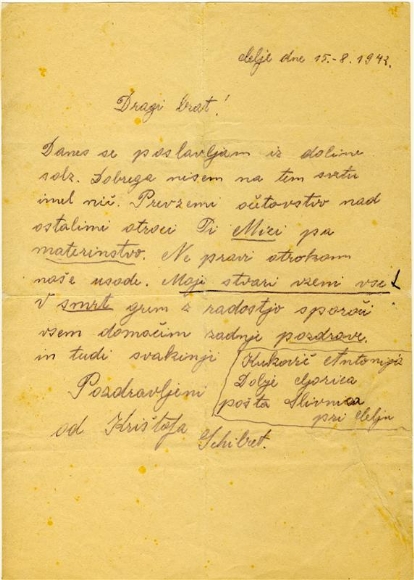 Celje dne 15.-8. 1942.
Dragi brat!
Danes se poslavljam iz doline
solz. Dobrega nisem na tem svetu
imel nič. Prevzemi očetovstvo nad
ostalimi otroci Ti Mici pa
materinstvo. Ne pravi otrokom
naše usode. Moji stvari vzemi vse!
V smrt grem z radostjo sporoči
vsem domačim zadnje pozdrave.
in tudi svakinji
Kukovič Antonija
Dolje Gorica
pošta Slivnica
pri Celju
Pozdravljeni
od Krištofa
Schibret.